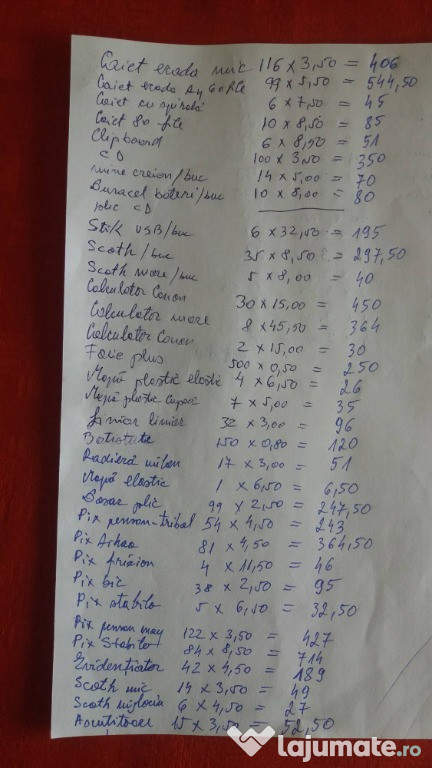 Caiet scoala mic 116 x 3,50 = 406
Caiet scoala A4 60 file 99 x 5,50 = 544,50
Caiet cu spirală 6 x 7,50 = 45
Caiet 80 file 10 x 8,50 = 85
Clipboard 6 x 8,50 = 51
CD 100 x 3,50 = 350
mine creion/buc 14 x 5,00 = 70
baterii/buc 10 x 8,00 = 80
plic CD
Stik USB/buc 6 x 32,50 = 195
Scoth/buc 35 x 8,50 = 297,50
Scoth mare/buc 5 x 8,00 = 40
Calculator Canon 30 x 15,00 = 450
Calculator mare 8 x 45,50 = 364
Calculator Canon 2 x 15,00 = 30
Folie plus 500 x 0,50 = 250
Mapă plastic elastic 4 x 6,50 = 26
Mapă plastic capse 7 x 5,00 = 35
liniar 32 x 3,00 = 96
150 x 0,80 = 120
Radieră milan 17 x 3,00 = 51
Mapă elastic 1 x 6,50 = 6,50
Dosar plic 99 x 2,50 = 247,50
Pix pensan-tribal 54 x 4,50 = 243
Pix 81 x 4,50 = 364,50
Pix frixion 4 x 11,50 = 46
Pix bic 38 x 2,50 = 95
Pix stabilo 5 x 6,50 = 32,50
Pix pensan may 122 x 3,50 = 427
Pix Stabilo 84 x 8,50 = 714
Evidentiator 42 x 4,50 = 189
Scoth mic 14 x 3,50 = 49
Scoth mijlociu 6 x 4,50 = 27
Ascutitoare 15 x 3,50 = 52,50
lajumate.ro